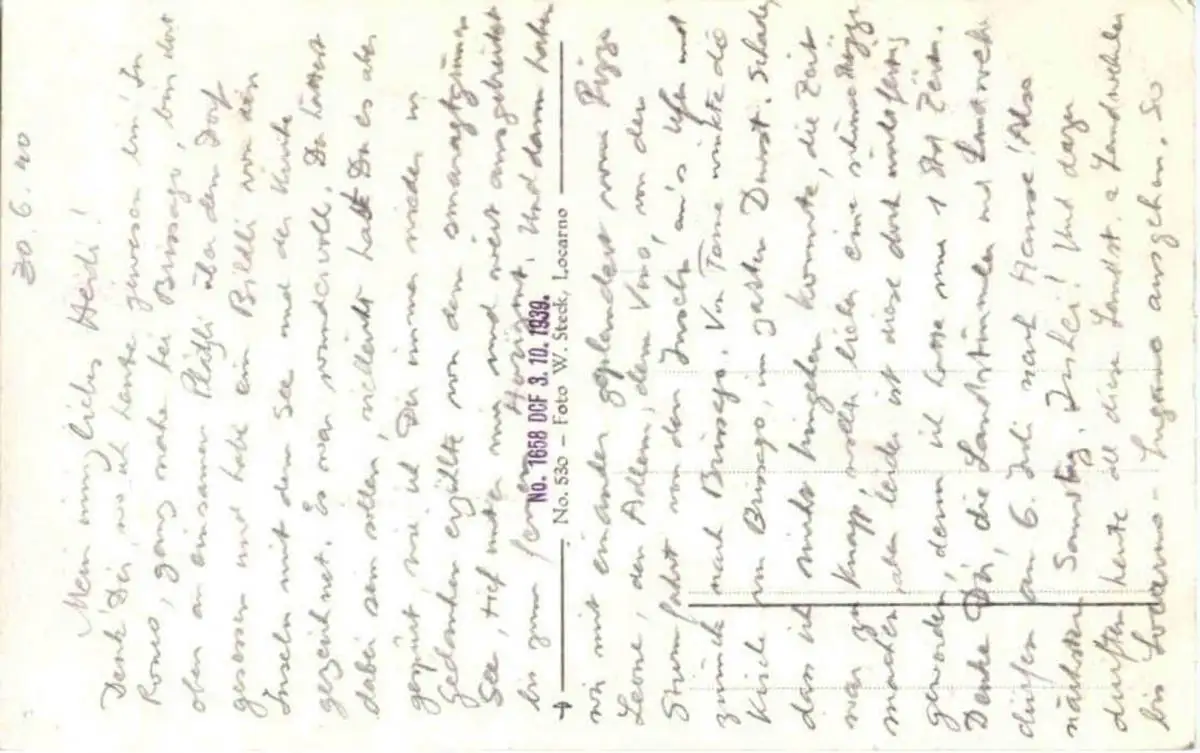 30.6.40
Mein innig liebes Heidi!
Denk Dir, wo ich heute gewesen bin! In
Ronco, ganz nahe bei Brissago, bin dort
oben an einsamen Plätzli über dem Dorf
gesessen und habe ein Bildli von den
Inseln mit dem See und der Kirche
gezeichnet. Es war wundervoll. Du hättest
dabei sein sollen, vielleicht hast Du es aber
gespürt wie ich Dir immer wieder in
Gedanken erzählte von dem smaragdgrünen
See, tief unter mir und weit ausgebreitet
bis zum fernen Horizont. Und dann haben
No. 1658 DCF 3. 10. 1939.
No. 530 – Foto W. Steck, Locarno
wir mit einander geplaudert vom Pizzo
Leone, den Adlern, dem Vino, von der
Sturmfahrt von den Inseln an's Ufer und
zurück nach Brissago. Von Ferne winkte die
Kirche von Brissago, im zarten Dunst. Schade,
dass ich nicht hingehen konnte, die Zeit
war zu knapp, wollt lieber eine Skizze
machen, aber leider ist diese doch nicht fertig
geworden, denn ich hatte nur 1 Std Zeit.
Denke Dir, die Landstürmler und Landwehr
dürfen am 6. Juli nach Hause! Also
nächsten Samstag. Und dazu
durften heute all diese Landst. & Landwehrler
bis Locarno - Lugano ausgehen. So